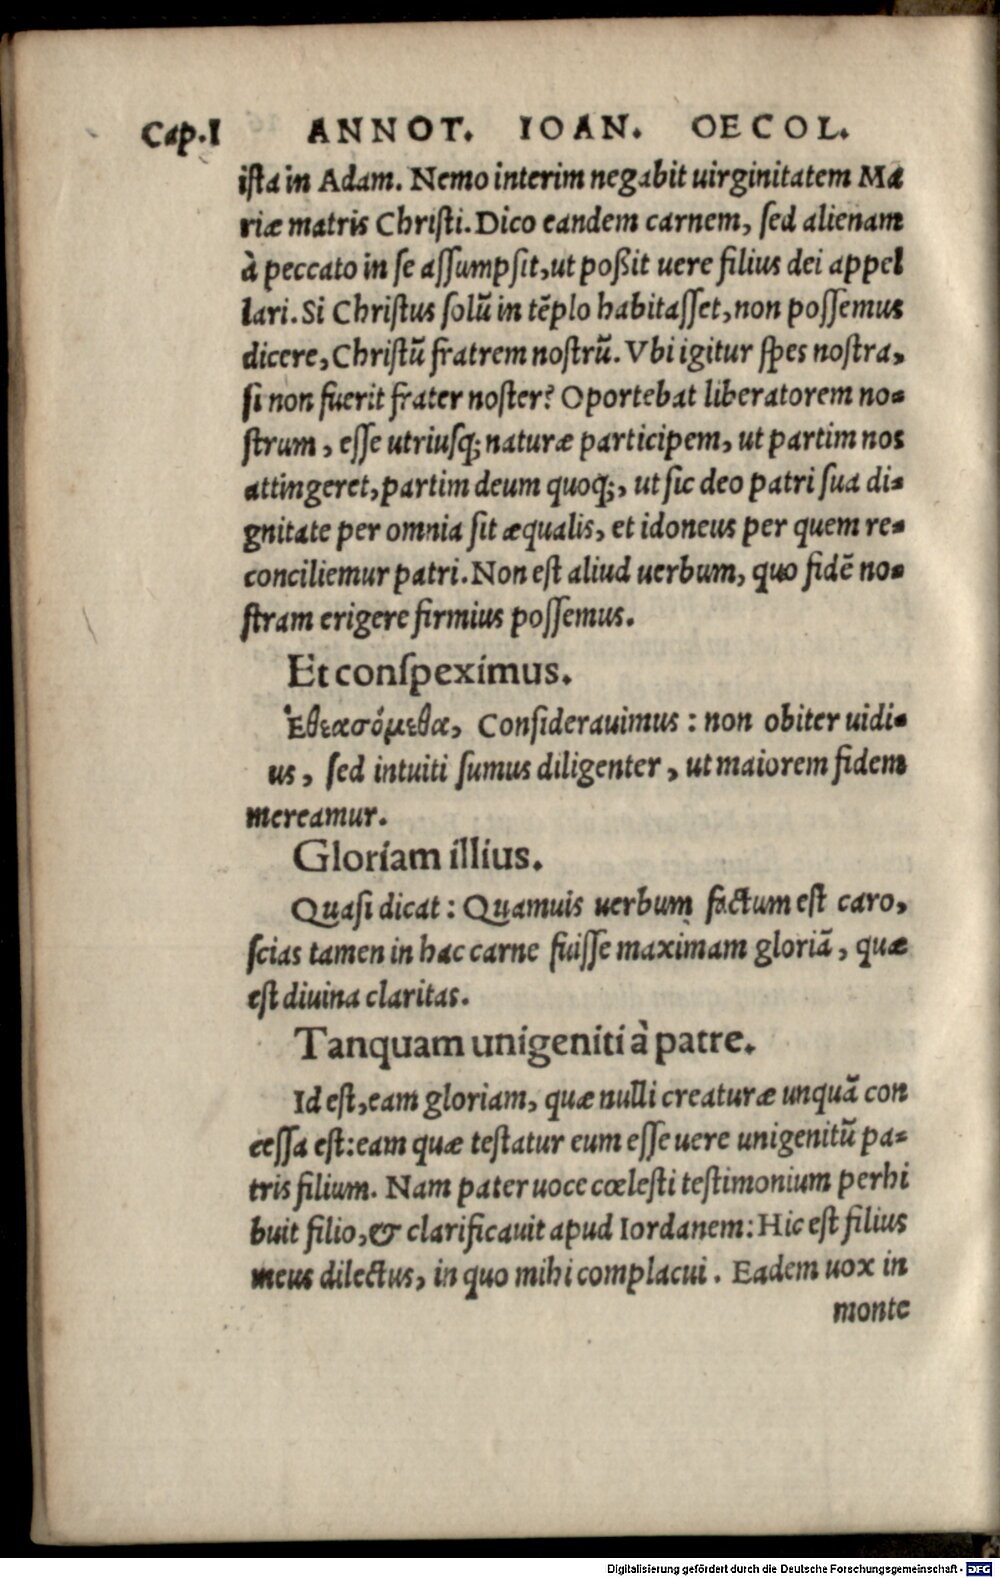 Cap.I ANNOT. IOAN. OECOL.
ista in Adam. Nemo interim negabit uirginitatem Ma
riæ matris Christi. Dico eandem carnem, sed alienam
à peccato in se assumpsit, ut poßit uere filius dei appel
lari. Si Christus solũ in tẽplo habitasset, non possemus
dicere, Christũ fratrem nostrũ. Vbi igitur spes nostra,
si non fuerit frater noster? Oportebat liberatorem no-
strum, esse utriusq; naturæ participem, ut partim nos
attingeret, partim deum quoq;, ut sic deo patri sua di-
gnitate per omnia sit æqualis, et idoneus per quem re-
conciliemur patri. Non est aliud uerbum, quo fidẽ no-
stram erigere firmius possemus.
Et conspeximus.
Ἐθεασόμεθα, Considerauimus: non obiter uidi-
us, sed intuiti sumus diligenter, ut maiorem fidem
mereamur.
Gloriam illius.
Quasi dicat: Quamuis uerbum factum est caro,
scias tamen in hac carne fuisse maximam gloriã, quæ
est diuina claritas.
Tanquam unigeniti à patre.
Id est, eam gloriam, quæ nulli creaturæ unquã con
cessa est: eam quæ testatur eum esse uere unigenitũ pa-
tris filium. Nam pater uoce cœlesti testimonium perhi
buit filio, & clarificauit apud Iordanem: Hic est filius
meus dilectus, in quo mihi complacui. Eadem uox in
monte
Digitalisierung gefördert durch die Deutsche Forschungsgemeinschaft - DFG